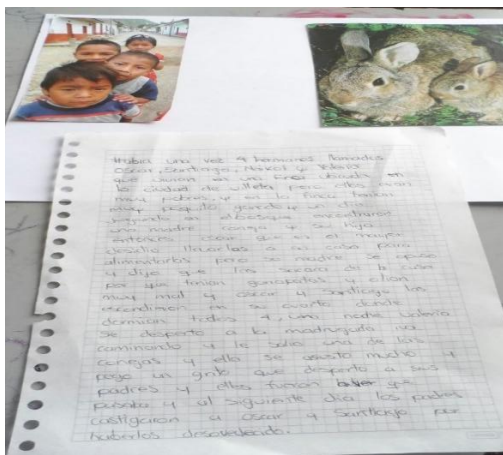 Habia una vez 4 hermanos llamados
Oscar, Santiago, y Valeria
que vivian en una finca ubicada en
la ciudad de villeta pero ellos eran
muy pobres, y en la finca tenian
muy poquito un dia
en el bosque encontraron
una madre coneja y su hijo
entonces oscar que es el mayor
decidio llevarlas a su casa para
alimentarlas pero su madre se opuso
y dijo que los sacara de la casa
por que tenian garrapatas y olian
muy mal y oscar y santiago los
escondieron en su cuarto donde
dormian todos 4, una noche valeria
se desperto a la madrugada iva
caminando y le salio una de las
conejas y ella se asusto mucho y
pego un grito que desperto a sus
padres y ellos fueron que
pasaba y al siguiente dia los padres
castigaron a oscar y santiago por
haberlos desovedecido.